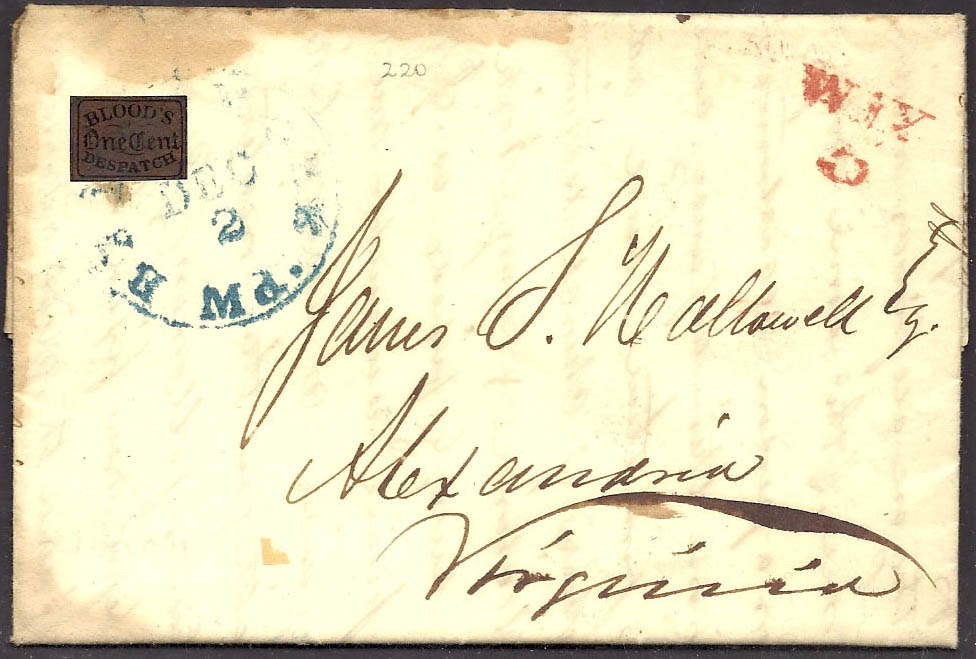 220
WAY
BLOOD'S
One Cent
DESPATCH
DEC
2
Md.
James S. Hallowell Esq.
Alexandria
Virginia